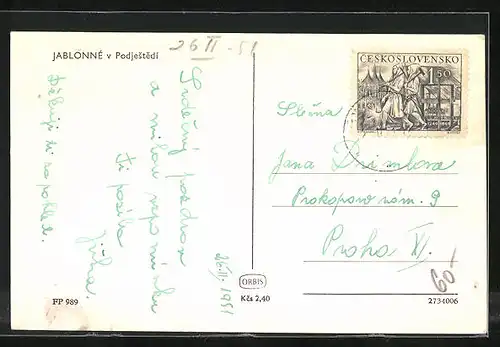 JABLONNÉ v Podještědí
26 II - 51
Děkuji ti za pohled.
Srdečný pozdrav
a milou vzpomínku
Ti posílá
Jirka.
26.II. 1951
ČESKOSLOVENSKO
1.50
Slečna
Jana
Prokopovo nám. 9
Praha XI.
60-
ORBIS
FP 989
Kčs 2,40
2734006